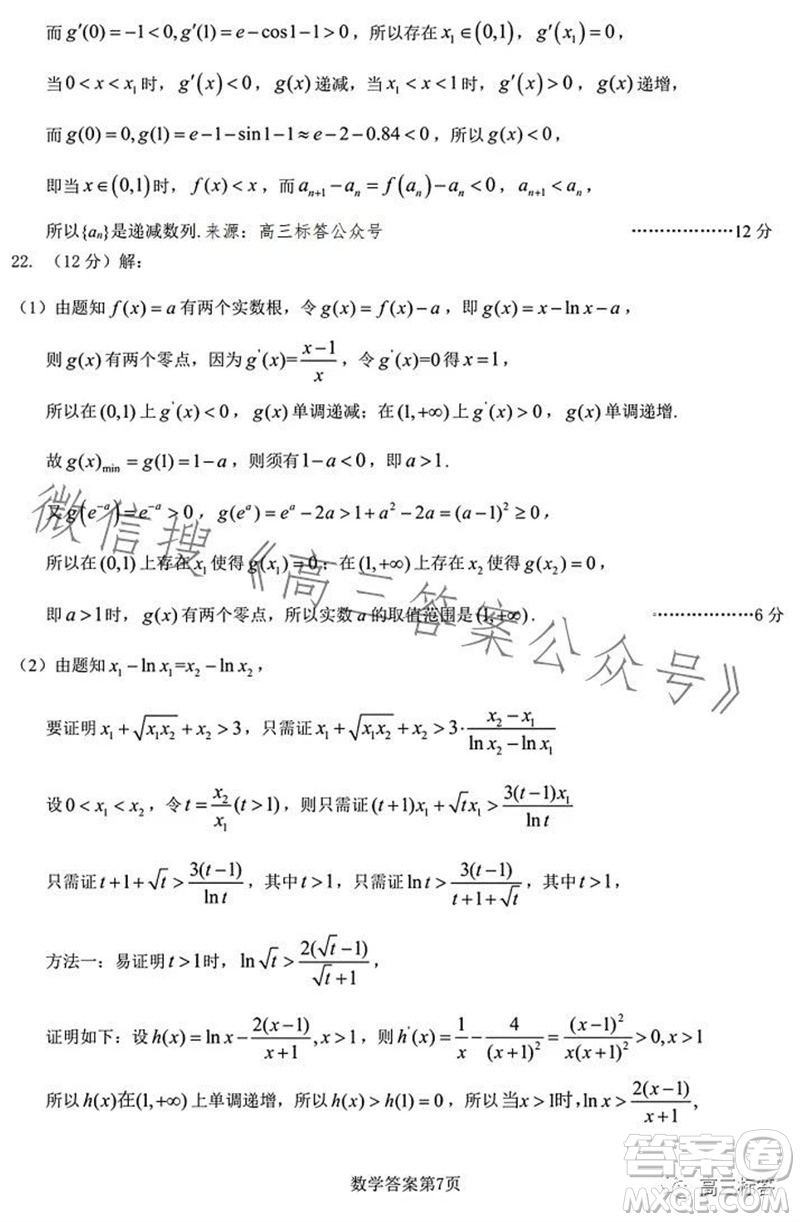 而g′(0)=-1<0,g′(1)=e-cos1-1>0，所以存在x₁∈(0,1)，g′(x₁)=0，
当0<x<x₁时，g′(x)<0，g(x)递减，当x₁<x<1时，g′(x)>0，g(x)递增，
而g(0)=0,g(1)=e-1-sin1-1≈e-2-0.84<0，所以g(x)<0，
即当x∈(0,1)时，f(x)<x，而aₙ₊₁-aₙ=f(aₙ)-aₙ<0，aₙ₊₁<aₙ，
所以{aₙ}是递减数列.来源：高三标答公众号 …………………12分
22. （12分）解：
（1）由题知f(x)=a有两个实数根，令g(x)=f(x)-a，即g(x)=x-ln x-a，
则g(x)有两个零点，因为g'(x)=(x-1)/x，令g'(x)=0得x=1，
所以在(0,1)上g'(x)<0，g(x)单调递减；在(1,+∞)上g'(x)>0，g(x)单调递增.
故g(x)min=g(1)=1-a，则须有1-a<0，即a>1.
又g(e⁻ᵃ)=e⁻ᵃ>0，g(eᵃ)=eᵃ-2a>1+a²-2a=(a-1)²≥0，
所以在(0,1)上存在x₁使得g(x₁)=0；在(1,+∞)上存在x₂使得g(x₂)=0，
即a>1时，g(x)有两个零点，所以实数a的取值范围是(1,+∞). …………………6分
（2）由题知x₁-ln x₁=x₂-ln x₂，
要证明x₁+√(x₁x₂)+x₂>3，只需证x₁+√(x₁x₂)+x₂>3·(x₂-x₁)/(ln x₂-ln x₁)
设0<x₁<x₂，令t=x₂/x₁(t>1)，则只需证(t+1)x₁+√t x₁>3(t-1)x₁/ln t
只需证t+1+√t>3(t-1)/ln t，其中t>1，只需证ln t>3(t-1)/(t+1+√t)，其中t>1，
方法一：易证明t>1时，ln√t>2(√t-1)/(√t+1)，
证明如下：设h(x)=ln x-2(x-1)/(x+1),x>1，则h'(x)=1/x-4/(x+1)²=(x-1)²/(x(x+1)²)>0,x>1
所以h(x)在(1,+∞)上单调递增，所以h(x)>h(1)=0，所以当x>1时,ln x>2(x-1)/(x+1),
数学答案第7页
微信搜《高三答案公众号》
答案圈
MXQE.COM
高三标答